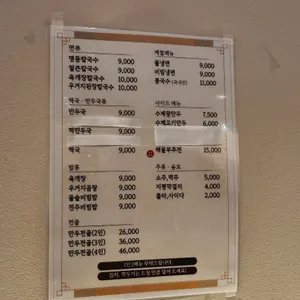 면류
명동칼국수 9,000
얼큰칼국수 9,000
육개장칼국수 10,000
우거지된장칼국수 10,000
떡국 · 만두국류
만두국 9,000
떡만두국 9,000
떡국 9,000
밥류
육개장 9,000
우거지곰탕 9,000
돌솥비빔밥 9,000
전주비빔밥 9,000
전골
만두전골(2인) 26,000
만두전골(3인) 36,000
만두전골(4인) 46,000
계절메뉴
물냉면 9,000
비빔냉면 9,000
콩국수 (국내산) 11,000
사이드 메뉴
수제왕만두 7,500
수제고기만두 6,000
해물부추전 15,000
주류 · 음료
소주,맥주 5,000
지평막걸리 4,000
콜라,사이다 2,000
1인 1메뉴 부탁드립니다.